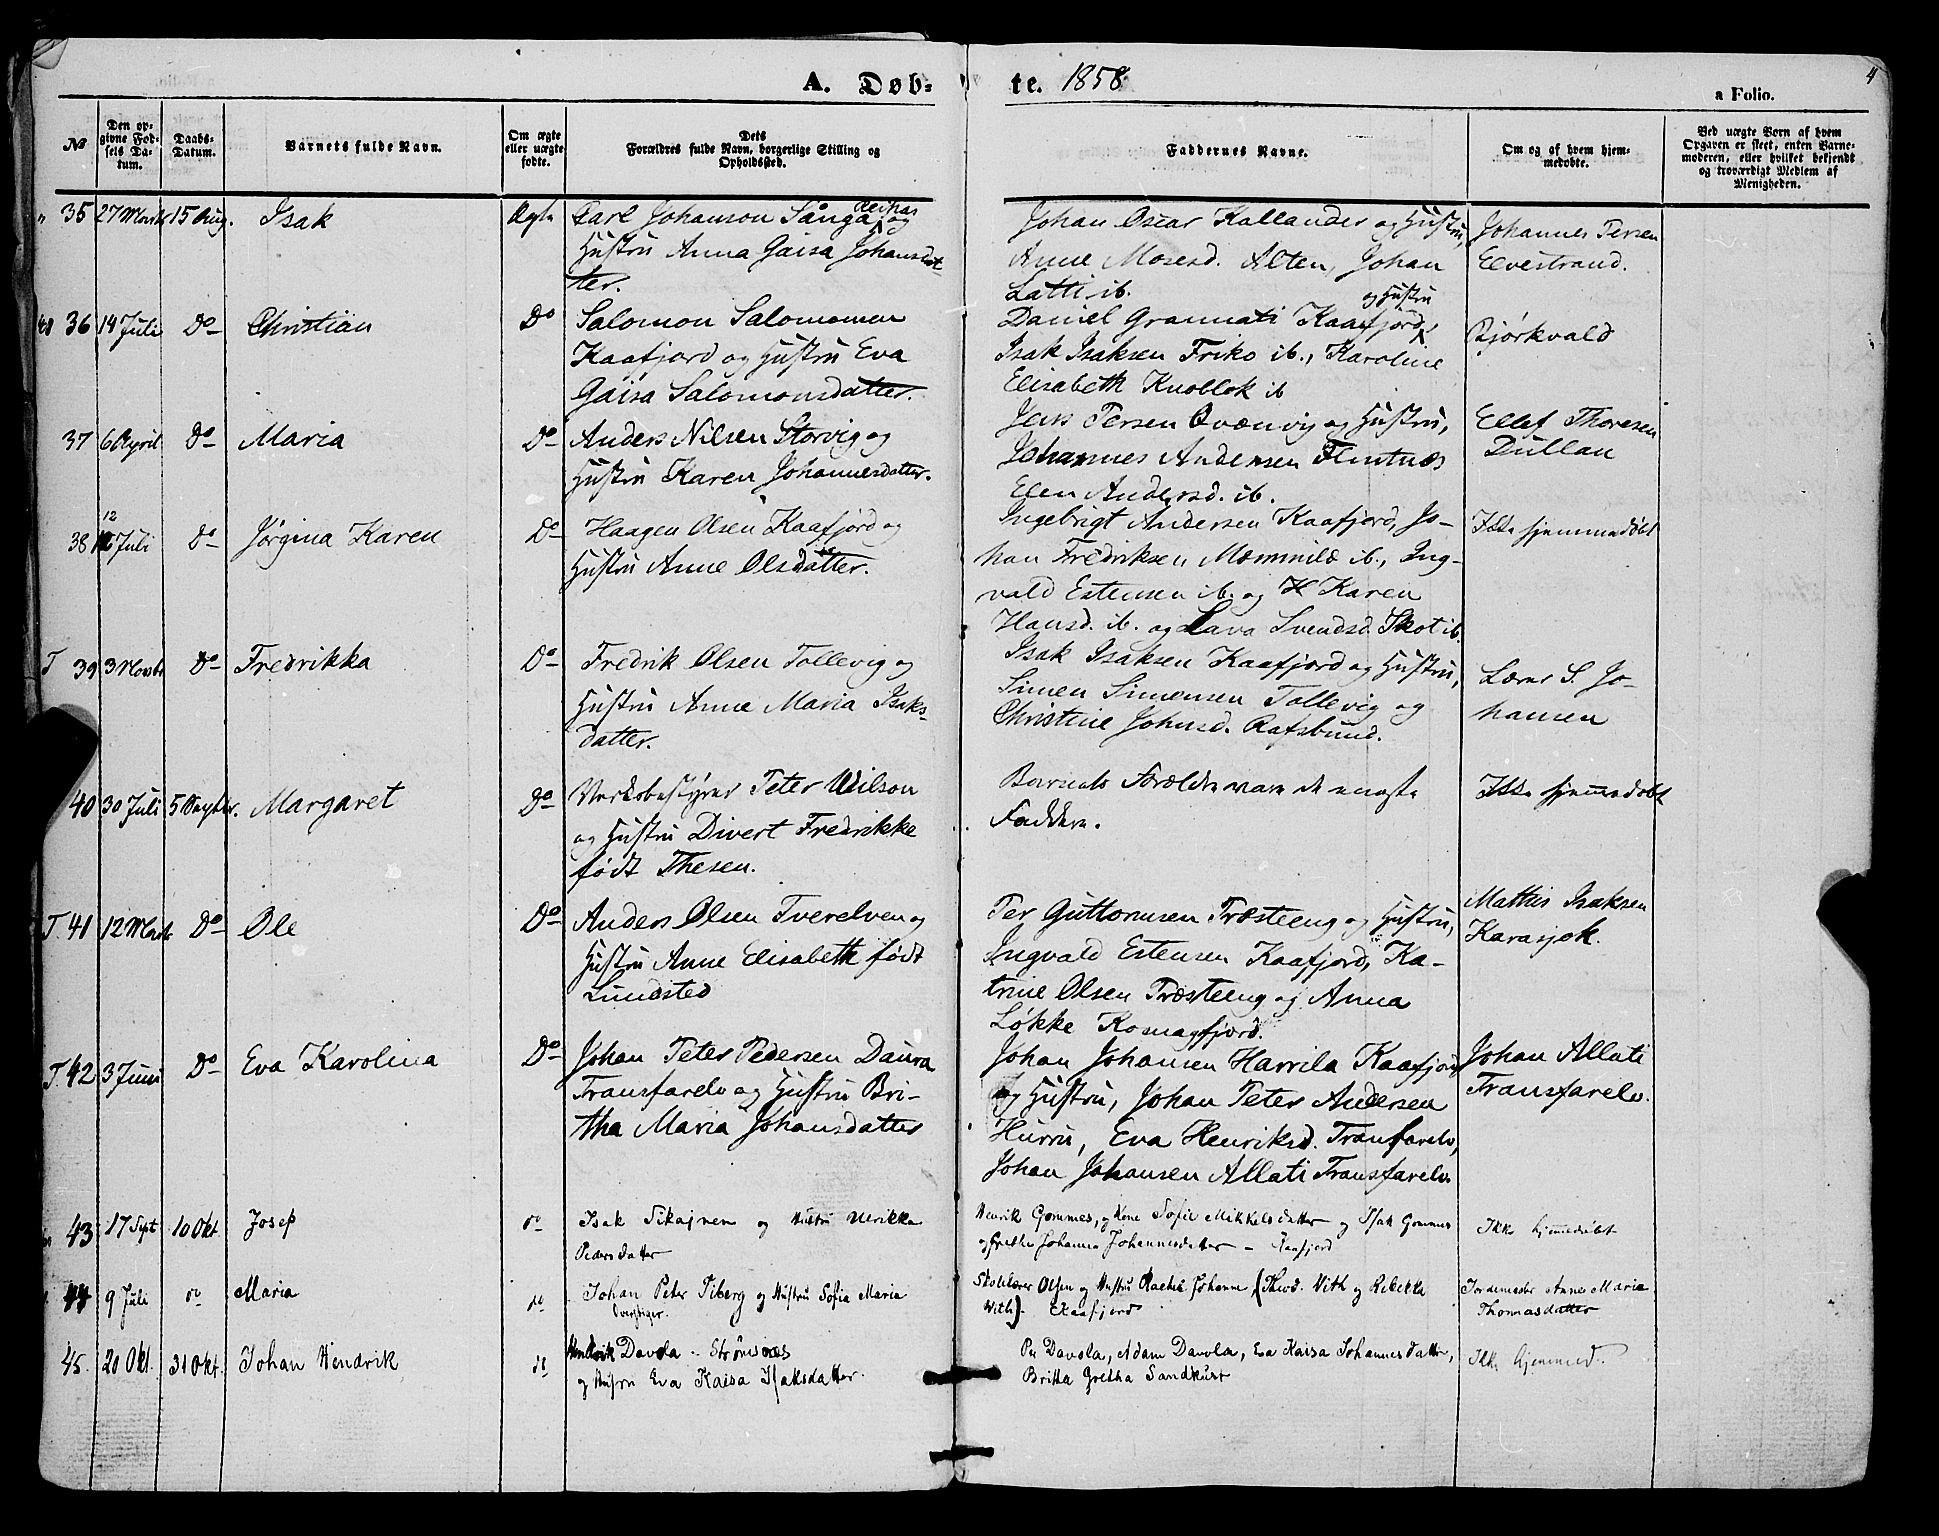 A. Døb-
te. 1858
4
a Folio.
№
Den op-
givne Fød-
sels Da-
tum.
Daabs-
Datum.
Barnets fulde Navn.
Om ægte
eller uægte
fødte.
Dets
Forældres fulde Navn, borgerlige Stilling og
Opholdssted.
Faddernes Navne.
Om og af hvem hjem-
medøbte.
Ved uægte Børn af hvem
Opgaven er skeet, enten Barne-
moderen, eller hvilket bekjendt
og troværdigt Medlem af
Menigheden.
35 27 Marts 15 Aug. Isak
Ægte
Carl Johanson Sånga og
Hustru Anna Gaisa Johansdat
ter.
Johan Oscar Kallander og Hustru,
Anne Mosesd. Alten, Johan
Latti ib.
Johannes Persen
Elvestrand.
36 14 Juli Do Christian
Do
Salomon Salomonsen
Kaafjord og Hustru Eva
Gaisa Salomonsdatter.
og Hustru
Daniel Grannati Kaafjord,
Isak Isaksen Friko ib., Karoline
Elisabeth Knoblok ib
Bjørkvald
37 6 April Do Maria
Do
Anders Nilsen Storvig og
Hustru Karen Johannesdatter.
Jens Persen Qvænvig og Hustru,
Johannes Andersen Flintnæs
Elen Andersd. ib.
Ellef Thoresen
Dullan
12
38 Juli Do Jørgina Karen
Do
Haagen Olsen Kaafjord og
Hustru Anne Olsdatter.
Ingebrigt Andersen Kaafjord, Jo-
han Fredriksen Mæmmilæ ib., Ing-
vald Estensen ib. og Karen
Hansd. ib. og Lava Svendsd. Skot ib.
Ikke hjemmedøbt
T 39 3 Marts Do Fredrikka
Do
Fredrik Olsen Tollevig og
Hustru Anne Maria Isaks-
datter.
Isak Isaksen Kaafjord og Hustru,
Simen Simensen Tollevig og
Christine Johnsd. Rafsbund.
Lærer S. Jo-
hansen
40 30 Juli 5 Septbr. Margaret
Do
Verksbestyrer Peter Wilson
og Hustru Divert Fredrikke
født Thesen.
Barnets Forældre vare de eneste
Faddere.
Ikke hjemmedøbt
T. 41 12 Marts Do Ole
Do
Anders Olsen Tverelven og
Hustru Anne Elisabeth født
Lundsted
Per Guttormsen Træsteeng og Hustru,
Ingvald Estensen Kaafjord, Ka-
trine Olsen Træsteeng og Anna
Løkke Komagfjord.
Mathis Isaksen
Karasjok.
T. 42 3 Juni Do Eva Karolina
Do
Johan Peter Pedersen Daura
Transfarelv og Hustru Bri-
tha Maria Johansdatter
Johan Johansen Harrila Kaafjord
og Hustru, Johan Peter Andersen
Hurru, Eva Henriksd. Tranfarelv,
Johan Johansen Allati Transfarelv
Johan Allati
Transfarelv.
43 17 Sept 10 Okt Josep
do
Isak Pikajnen og Hustru Ulrikka
Pedersdatter
Henrik Gommes, og Kone Sofie Mikkelsdatter og Isak Gommes
og Grethe Johanna Johannesdatter - Kaafjord
Ikke hjemmedøbt
44 9 Juli do Maria
do
Johan Peter Piberg og Hustru Sofia Maria
Skolelærer Olsen og Hustru Rachel Johanne (Theod. With og Rebekka
With). Kaafjord
Jordemoder Anne Maria
Thomasdatter
45. 20 Okt. 31 Okt. Johan Hendrik
do
Hendrik Davola - Strømsnæs
og Hustru Eva Kaisa Isaksdatter.
Per Davola, Adam Davola, Eva Kaisa Johannesdatter,
Britta Gretha Sandkurt
Ikke hjemmed.